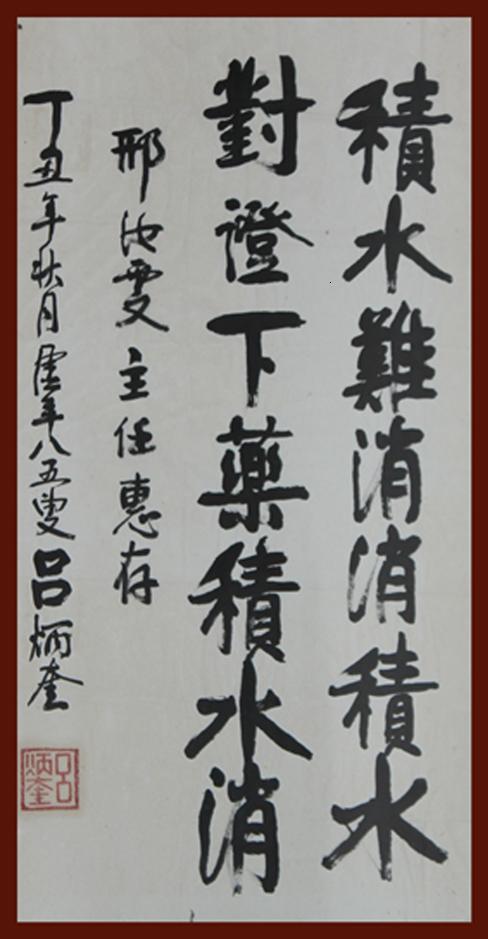 積水難消消積水
對證下藥積水消
邢雯主任惠存
丁丑年秋月虛年八五叟呂炳奎
呂炳奎